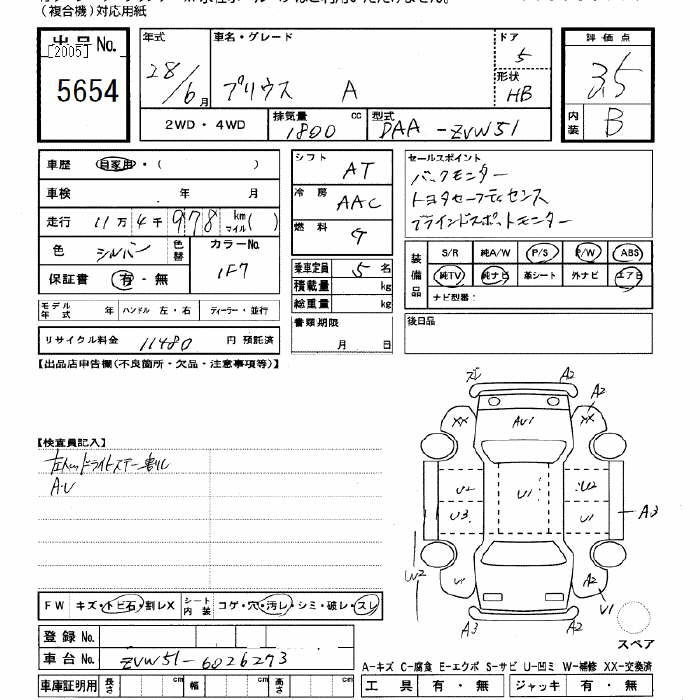 (複合機)対応用紙
出品No.
[2005]
5654
年式
28/6月
車名・グレード
プリウス A
ドア
5
形状
HB
評価点
3.5
内装
B
2WD・4WD
排気量 cc
1800
型式
DAA-ZVW51
車歴 自家用・( )
車検 年 月
走行 11万4千978km マイル( )
色 シルバー 色替
カラーNo.
1F7
保証書 有・無
モデル年式 年 ハンドル 左・右 ディーラー・並行
リサイクル料金 11480 円 預託済
シフト AT
冷房 AAC
燃料 G
乗車定員 5名
積載量 kg
総重量 kg
書類期限
月 日
セールスポイント
バックモニター
トヨタセーフティセンス
ブラインドスポットモニター
装備品
S/R 純A/W P/S P/W ABS
純TV 純ナビ 革シート 外ナビ エアB
ナビ型番:
後日品
【出品店申告欄(不良箇所・欠品・注意事項等)】
【検査員記入】
A・U
FW キズ・トビ石・割レX
シート内装 コゲ・穴・汚レ・シミ・破レ・スレ
登録No.
車台No. ZVW51-6026273
車庫証明用 長さ cm 幅 cm 高さ cm
A2
A2
XX
AU1
XX
U2
U1
U2
U3
U1
A3
W2
A2
U1
A3
A2
スペア
A-キズ C-腐食 E-エクボ S-サビ U-凹ミ W-補修 XX-交換済
工具 有・無 ジャッキ 有・無